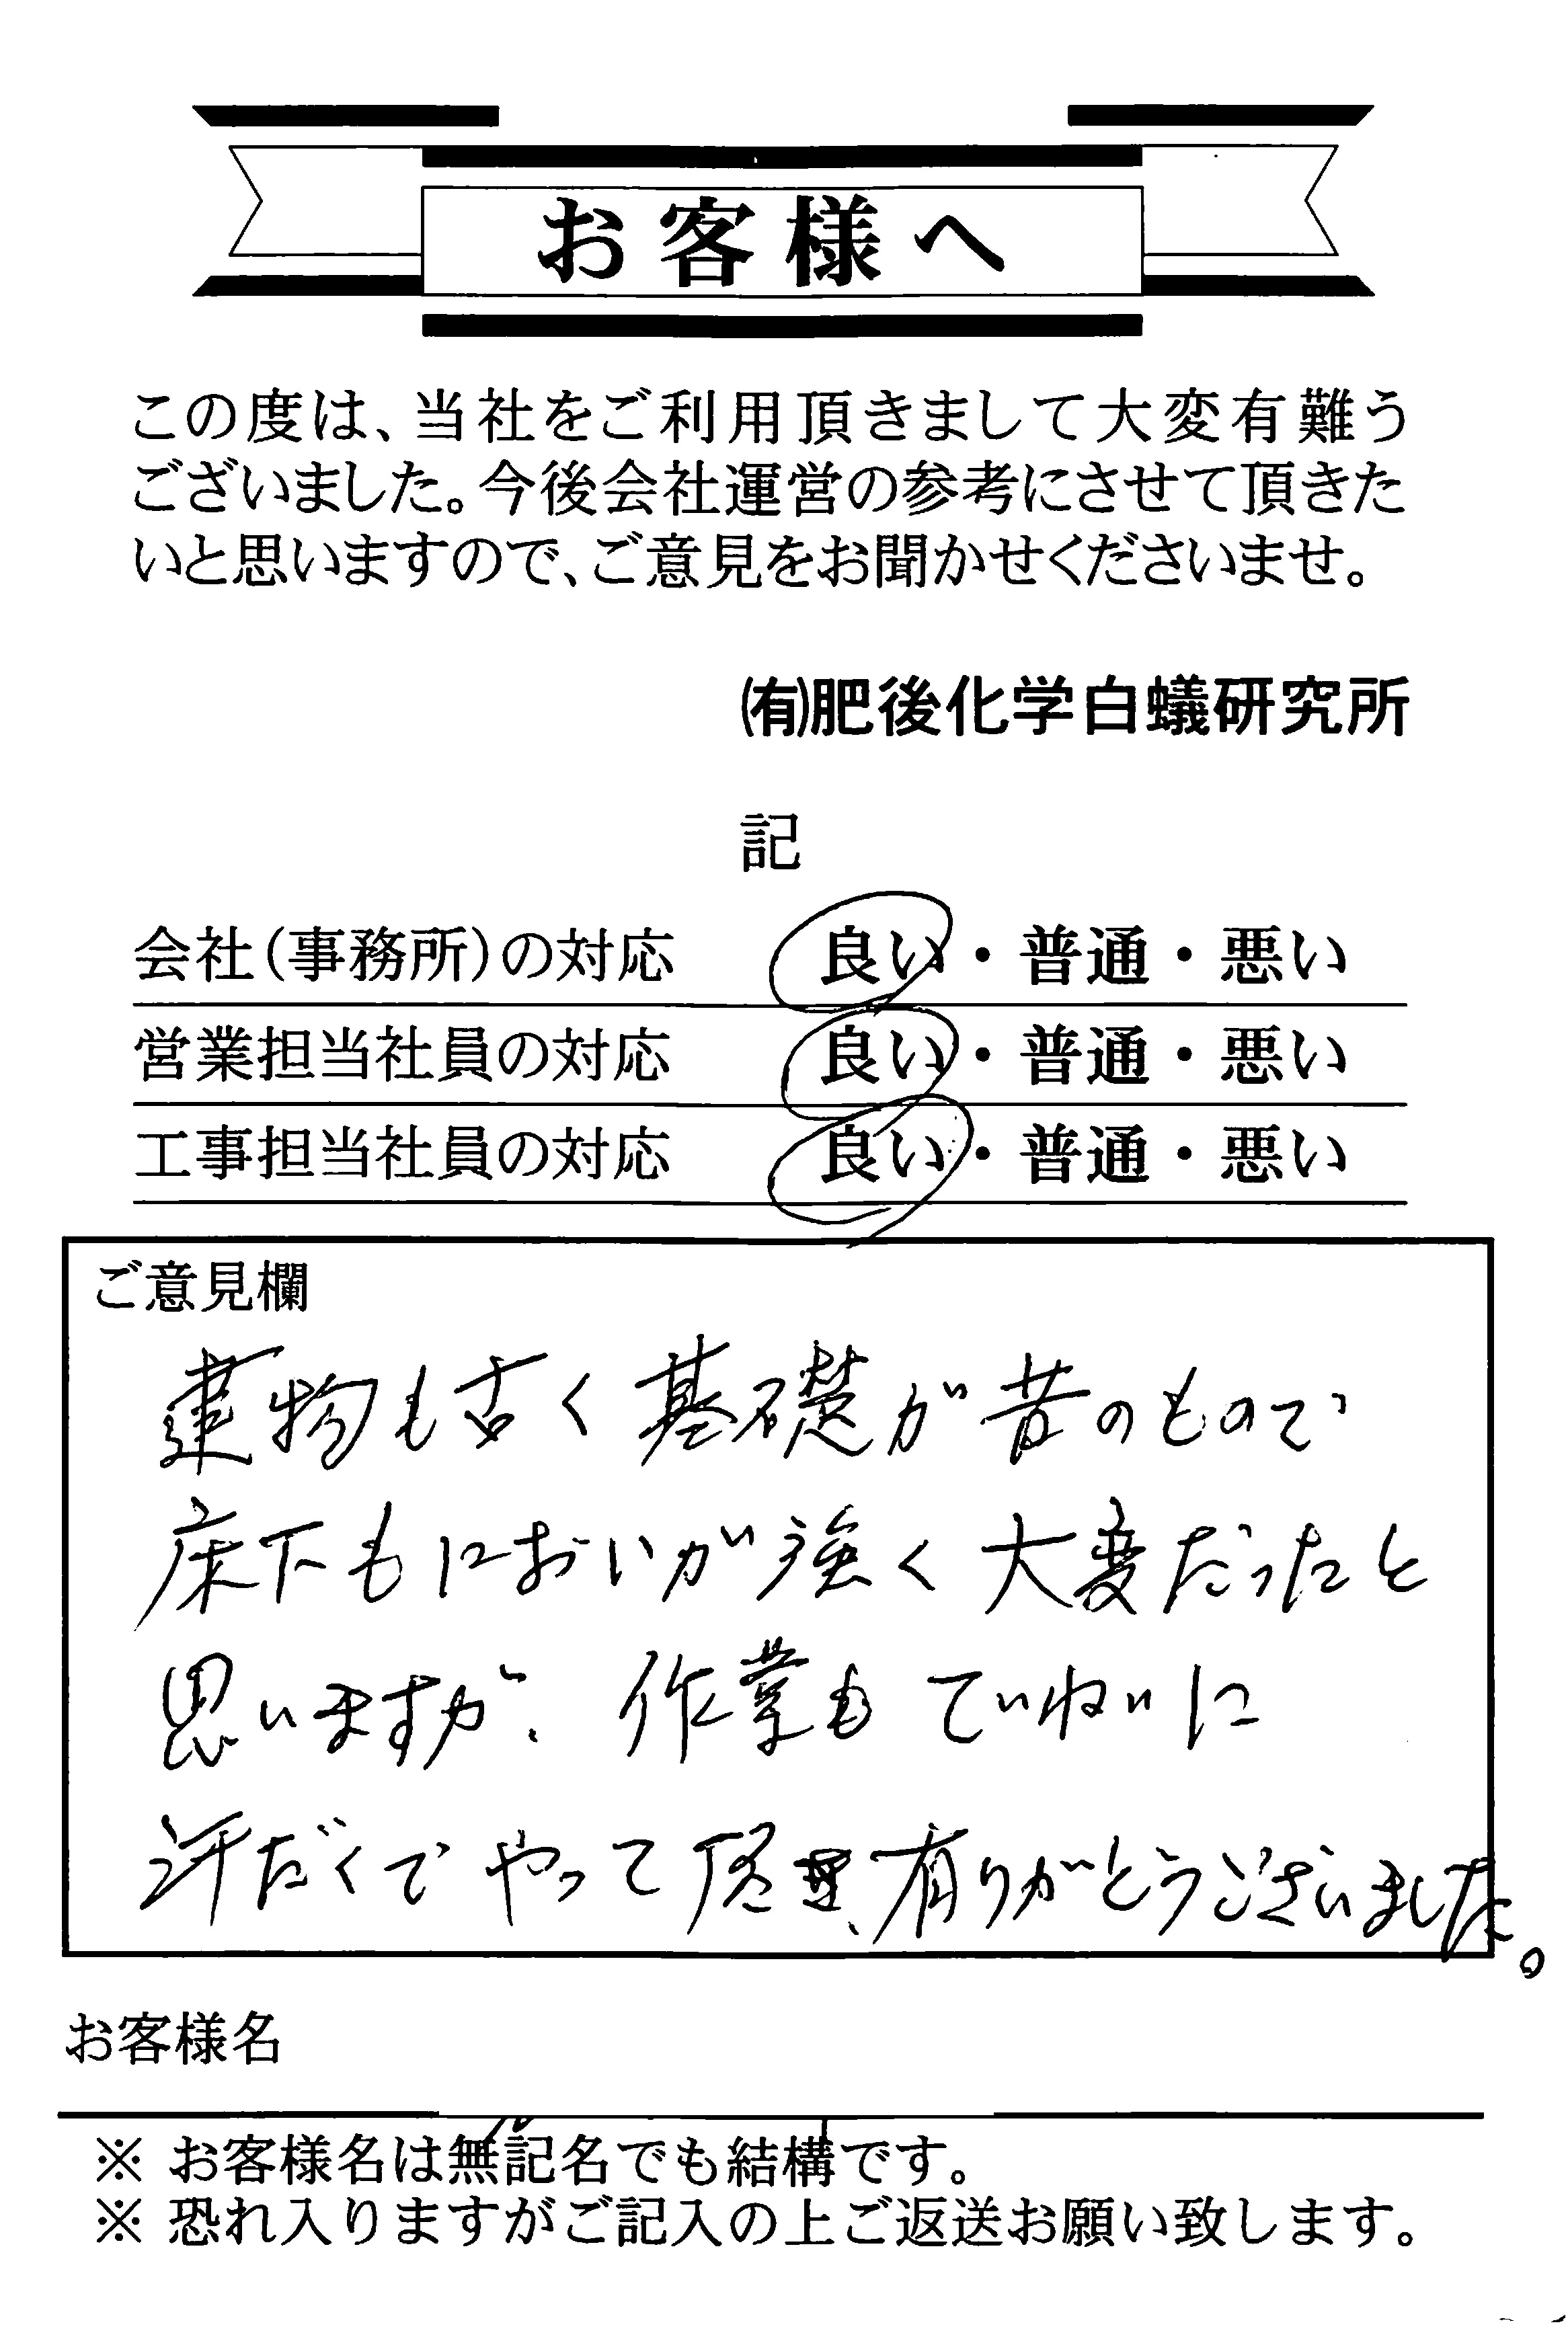 お客様へ
この度は、当社をご利用頂きまして大変有難う
ございました。今後会社運営の参考にさせて頂きた
いと思いますので、ご意見をお聞かせくださいませ。
㈲肥後化学白蟻研究所
記
会社(事務所)の対応 良い・普通・悪い
営業担当社員の対応 良い・普通・悪い
工事担当社員の対応 良い・普通・悪い
ご意見欄
建物も古く基礎が昔のもので
床下もにおいが強く大変だったと
思いますが、作業もていねいに
汗だくでやって頂き、有りがとうございました。
お客様名
※ お客様名は無記名でも結構です。
※ 恐れ入りますがご記入の上ご返送お願い致します。